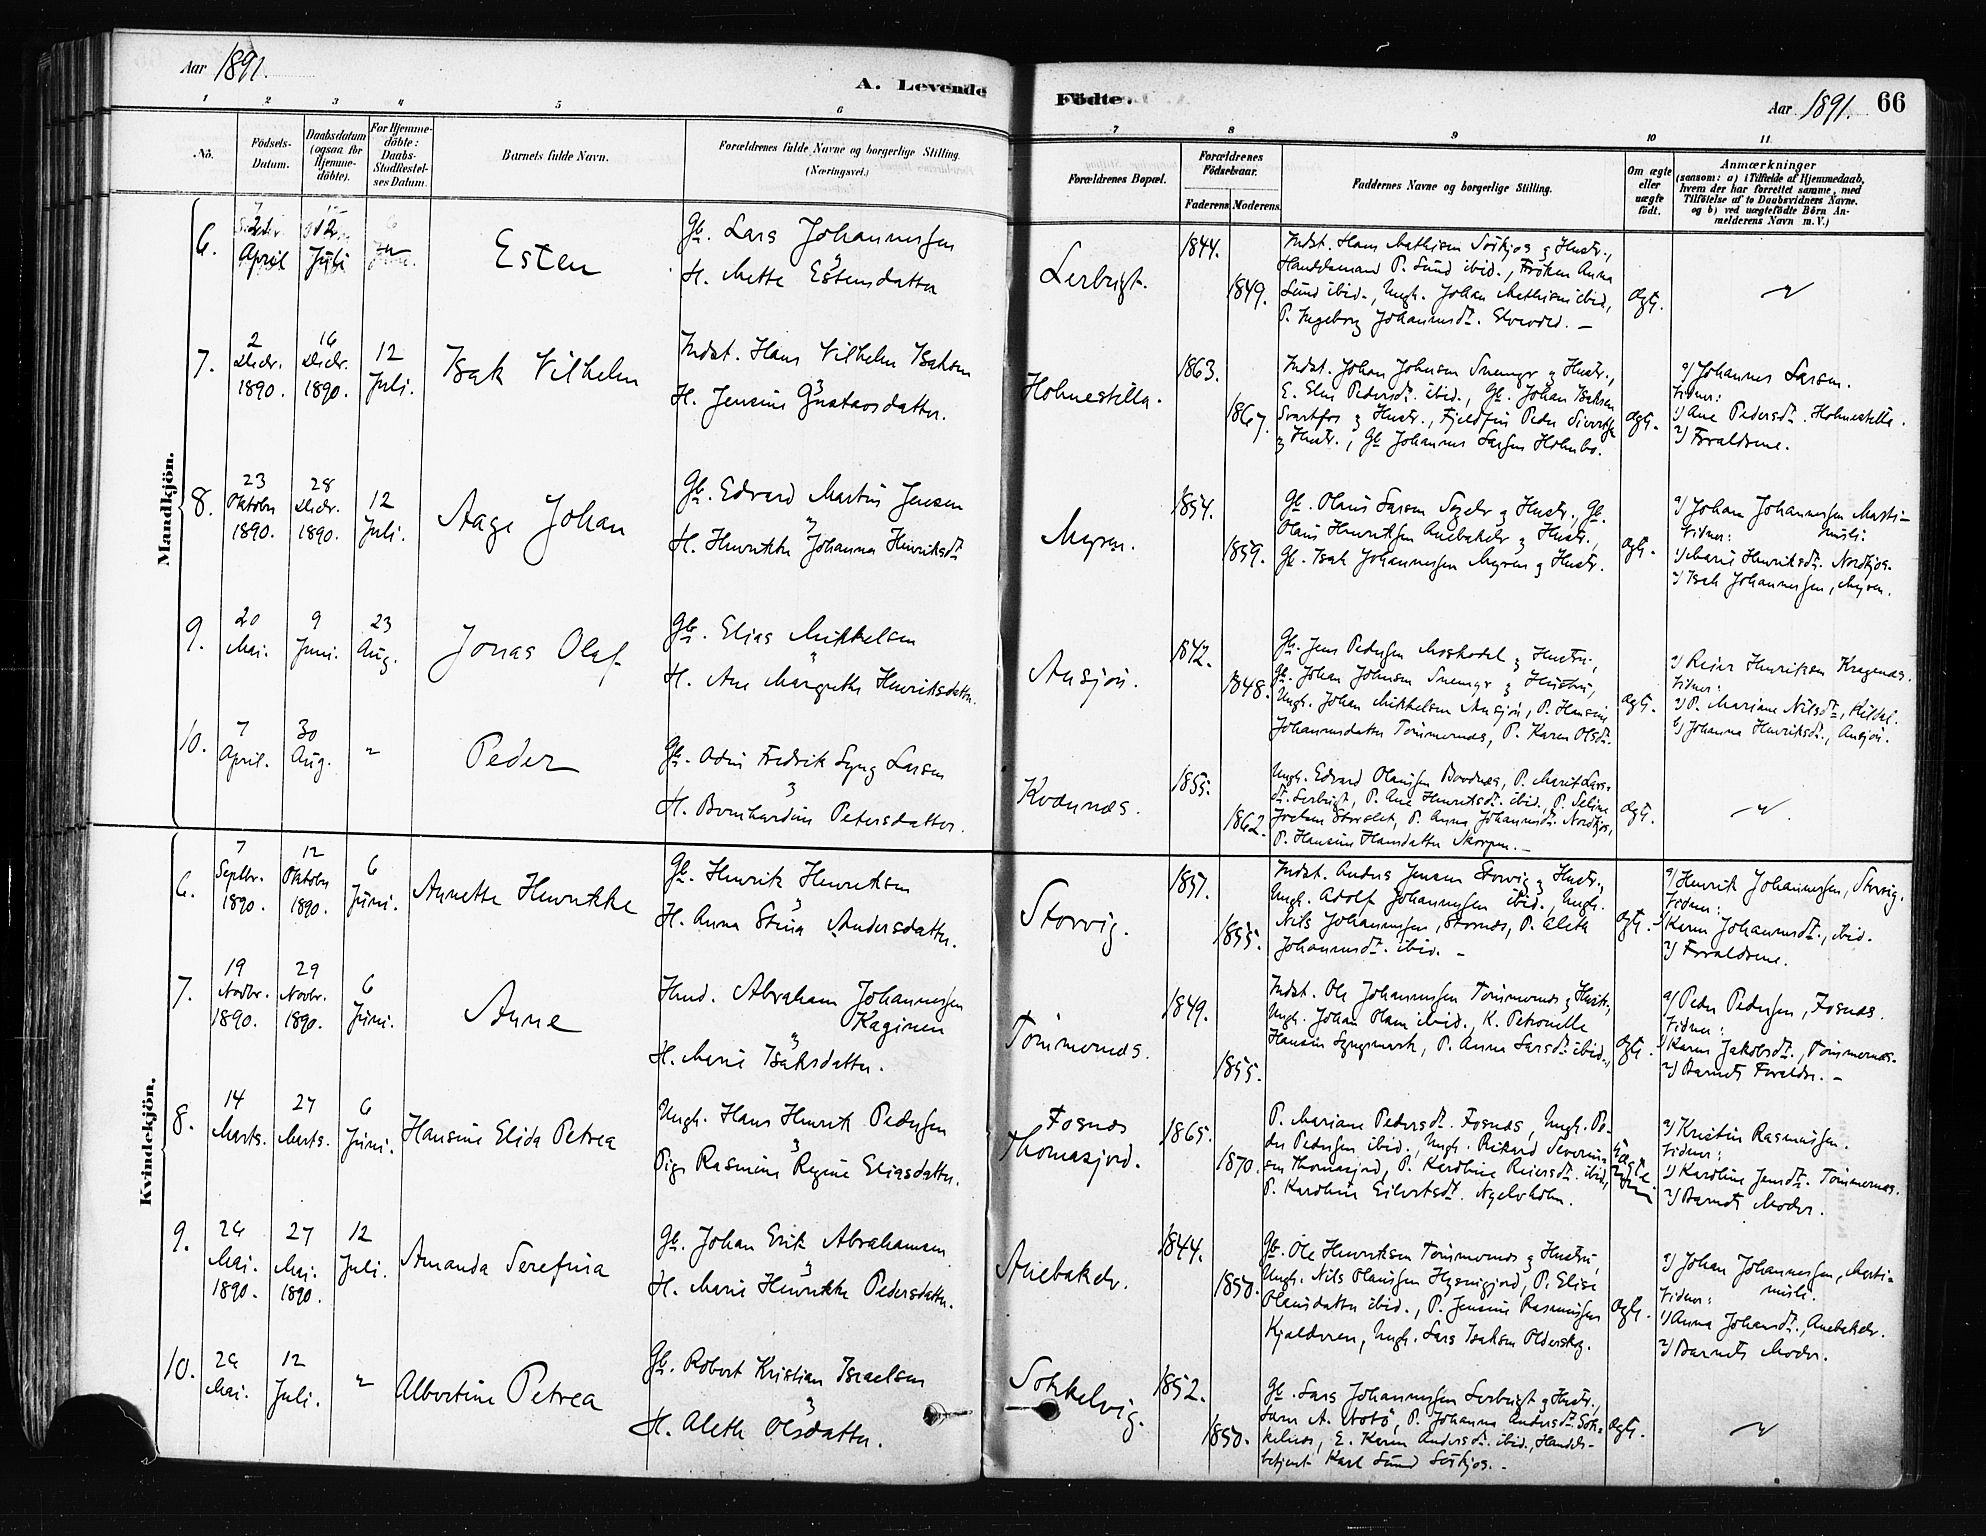 Aar 1891.
A. Levende
Födte.
Aar 1891. 66
1 2 3 4 5 6 7 8 9 10 11
No.
Födsels-
Datum.
Daabsdatum
(ogsaa for
Hjemme-
döbte).
For Hjemme-
döbte:
Daabs-
Stadfestel-
ses Datum.
Barnets fulde Navn.
Forældrenes fulde Navne og borgerlige Stilling.
(Næringsvei.)
Forældrenes Bopæl.
Forældrenes
Födselsaar.
Faderens
Moderens
Faddernes Navne og borgerlige Stilling.
Om ægte
eller
uægte
födt.
Anmærkninger
(saasom: a) i Tilfælde af Hjemmedaab,
hvem der har forrettet samme, med
Tilföielse af to Daabsvidners Navne.
og b) ved uægtefödte Börn An-
melderens Navn m. V.)
Mandkjön.
6.
2
April
12
Juli
Esten
Gb. Lars Johannessen
H. Mette Estensdatter
Lerbugt.
1844.
1849.
Indst. Hans Mathisen Sörkjos og Hustr.,
Handelsmand P. Lund ibid., Fröken Anna
Lund ibid., Ungk. Johan Mathisen ibid,
P. Ingeborg Johannesdt. Elvevold. –
ægt.
7.
2
Decbr.
1890.
16
Decbr.
1890.
12
Juli.
Isak Vilhelm
Indst. Hans Vilhelm Isaksen
H. Jensine Gustavsdatter.
Holmestilla.
1863.
1867.
Indst. Johan Johnsen Snemyr og Hustr.,
E. Elen Pedersdt. ibid., Gb. Johan Isaksen
Svartfos og Hustr., Fjeldfin Peder Sivertsen
og Hustr., Gb. Johannes Larsen Holmbo.
ægt.
a) Johannes Larsen.
Vidner:
1) Ane Pedersdt. Holmestilla.
2) Forældrene.
8.
23
Oktober
1890.
28
Decbr.
1890.
12
Juli.
Aage Johan
Gb. Edvard Martin Jensen
H. Henrikke Johanna Henriksdt.
Myren.
1854.
1859.
Gb. Olaus Larsen og Hustr., Gb.
Olaus Henriksen Anebakdr og Hustr.,
Gb. Isak Johannessen Myren og Hustr.
ægt.
a) Johan Johannessen Marti-
Vidner: nusli.
1) Marie Henriksdt. Nordkjos.
2) Isak Johannessen, Myren.
9.
20
Mai.
9
Juni.
23
Aug.
Jonas Olaf
Gb. Elias Mikkelsen
H. Ane Margrethe Henriksdatter.
Ansjön.
1842.
1848.
Gb. Jens Pedersen Moskodal og Hustru,
Gb. Johan Johnsen Snemyr og Hustru,
Ungk. Johan Mikkelsen Ansjön, P. Hansine
Johannesdatter Tömmernæs, P. Karen Olsdt.
ægt.
a) Reier Henriksen Kragenæs.
Vidner:
1) P. Mariane Nilsdt., Kildal.
2) Johanna Henriksdt., Ansjön.
10.
7
April.
30
Aug.
"
Peder
Gb. Odin Fredrik Lyng Larsen
H. Bernhardine Petersdatter.
Kvænnæs.
1855.
1862.
Ungk. Edvard Olaussen, P. Marit Lars-
dt. Lerbugt, P. Ane Henriksdt. ibid., P. Selma
Jochum Storslet, P. Anna Johannesdt. Nordkjos,
P. Hansine Hansdatter Skorpen. –
ægt.
Kvindekjön.
6.
7
Septbr.
1890.
12
Oktober
1890.
6
Juni.
Annette Henrikke
Gb. Henrik Henriksen
H. Anna Stina Andersdatter.
Storvig.
1857.
1855.
Indst. Anders Jensen Storvig og Hustr.,
Ungk. Adolf Johannessen ibid., Ungk.
Nils Johannessen, Stornes, P. Aleta
Johannesdt. ibid. –
ægt.
a) Henrik Johannessen, Storvig.
Vidner:
1) Karen Johannesdt., ibid.
2) Forældrene.
7.
19
Novbr.
1890.
29
Novbr.
1890.
6
Juni.
Anne
Husmd. Abraham Johannessen
Kaginen
H. Marie Isaksdatter.
Tömmernæs.
1849.
1855.
Indst. Ole Johannessen Tömmernæs og Hustr.,
Ungk. Johan Olsen ibid., K. Petronelle
Hansen Lyngmark, P. Anna Larsdt. ibid.,
ægt.
a) Peder Pedersen, Fosnæs.
Vidner:
1) Karen Jakobsdt., Tömmernæs.
2) Barnets Forældre. –
8.
14
Marts.
27
Marts.
6
Juni.
Hansine Elida Petrea
Ungk. Hans Henrik Pedersen
Pige Rasmine Regine Eliasdatter.
Fosnæs
Thomasjord.
1865.
1870.
P. Mariane Pedersdt. Fosnæs, Ungk. Pe-
der Pedersen ibid., Ungk. Rikard Severin-
sen Thomasjord, P. Karoline Reiersdt. ibid,
P. Karoline Eilertsdt. Nyelvholm.
uægte
a) Kristin Rasmussen.
Vidner:
1) Karoline Jensdt. Tömmernæs.
2) Barnets Moder.
9.
24
Mai.
1890.
27
Mai.
1890.
12
Juli.
Amanda Serefina
Gb. Johan Erik Abrahamsen
H. Marie Henrikke Pedersdatter.
Anebakdr.
1844.
1850.
Gb. Ole Henriksen Tömmernæs og Hustru,
Ungk. Nils Olaussen Hysingjord, P. Elise
Olausdatter ibid., P. Jensine Rasmussen
Kjeldveren, Ungk. Lars Isaksen Olderskog.
ægt.
a) Johan Johannessen, Marti-
Vidner: nusli.
1) Anna Johansdt., Anebakdr.
2) Barnets Moder.
10.
24
Mai.
12
Juli.
"
Albertine Petrea
Gb. Robert Kristian Israelsen
H. Aleth Olsdatter.
Sokkelvig.
1852.
1850.
Gb. Lars Johannessen Lerbugt og Hustr.,
Lars A. Notö, P. Johanna Andersdt. Sok-
kelnes, E. Karen Andersdt. ibid., Handels-
betjent Karl Lund Sörkjos. –
ægt.